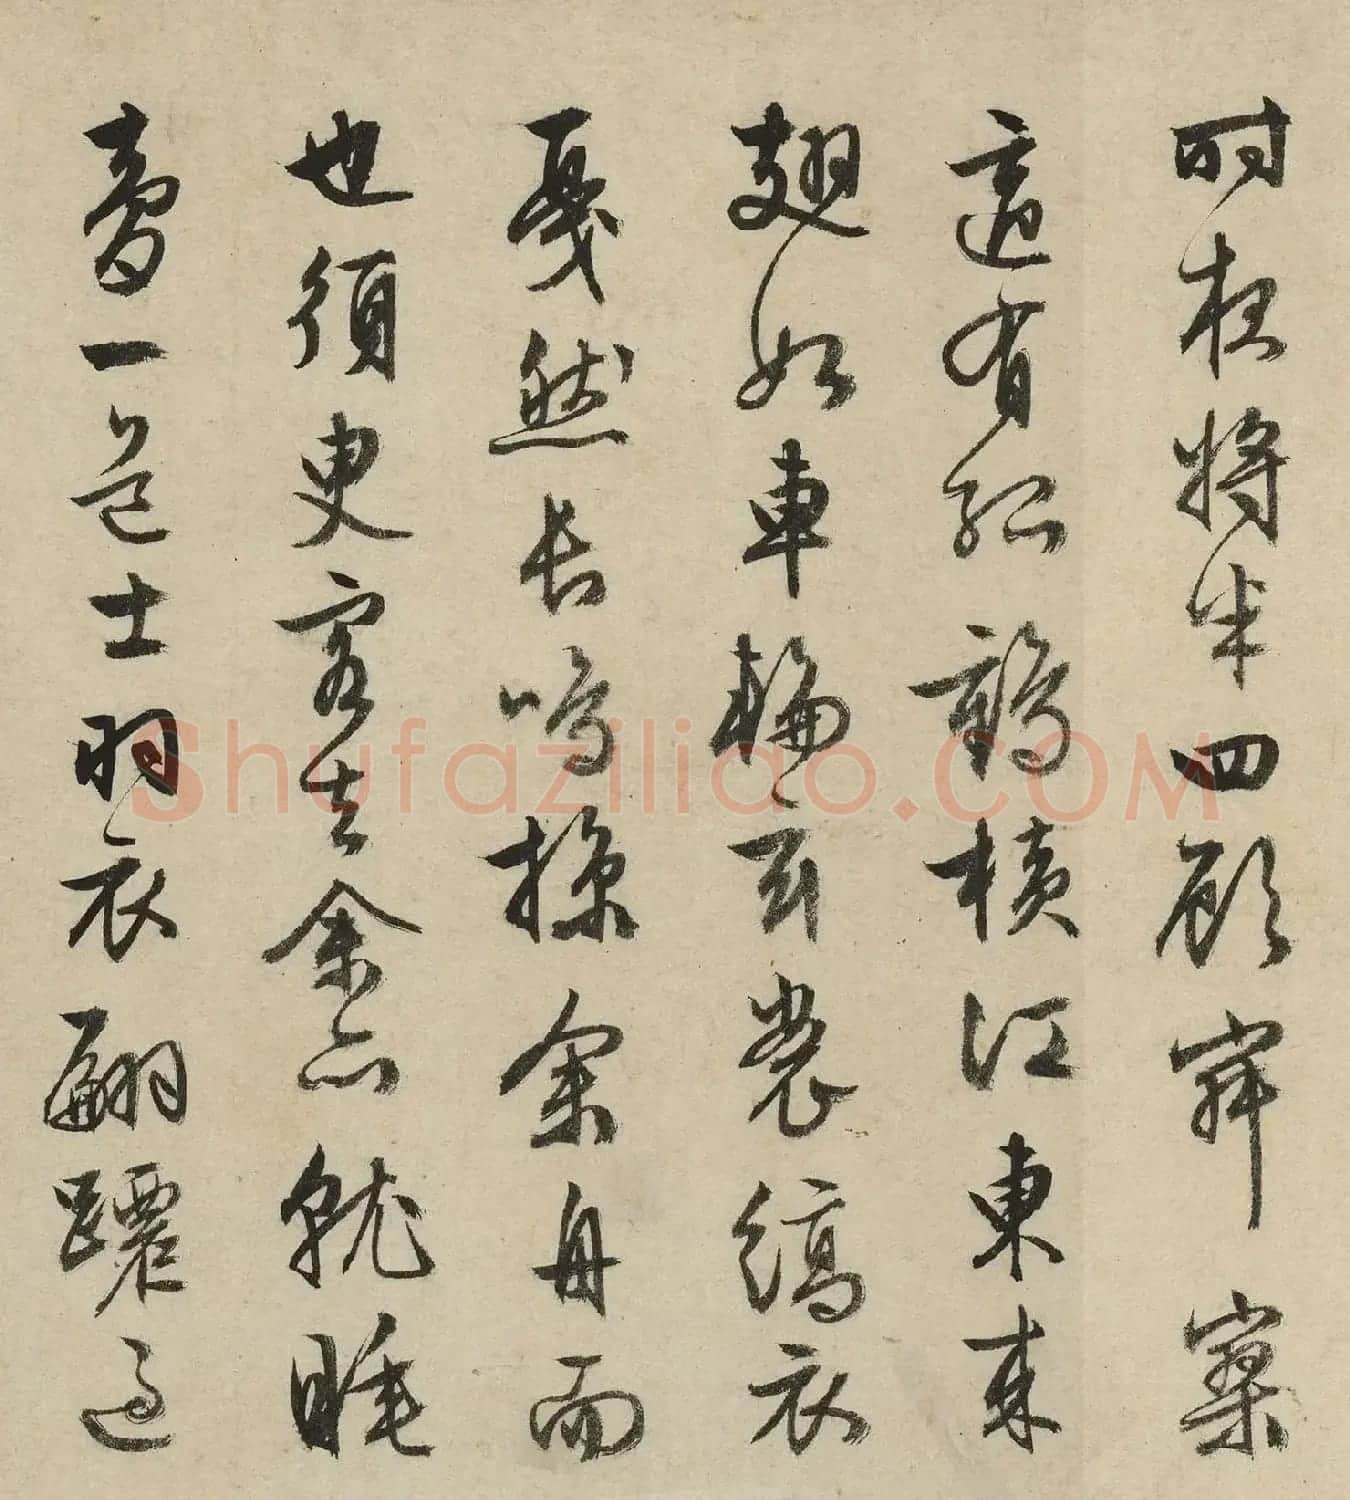 時夜將半四顧寂寥
適有孤鶴橫江東來
翅如車輪玄裳縞衣
戛然長鳴掠余舟而
也須臾客去余亦就睡
夢一道士羽衣翩躚過
Shufaziliao.COM